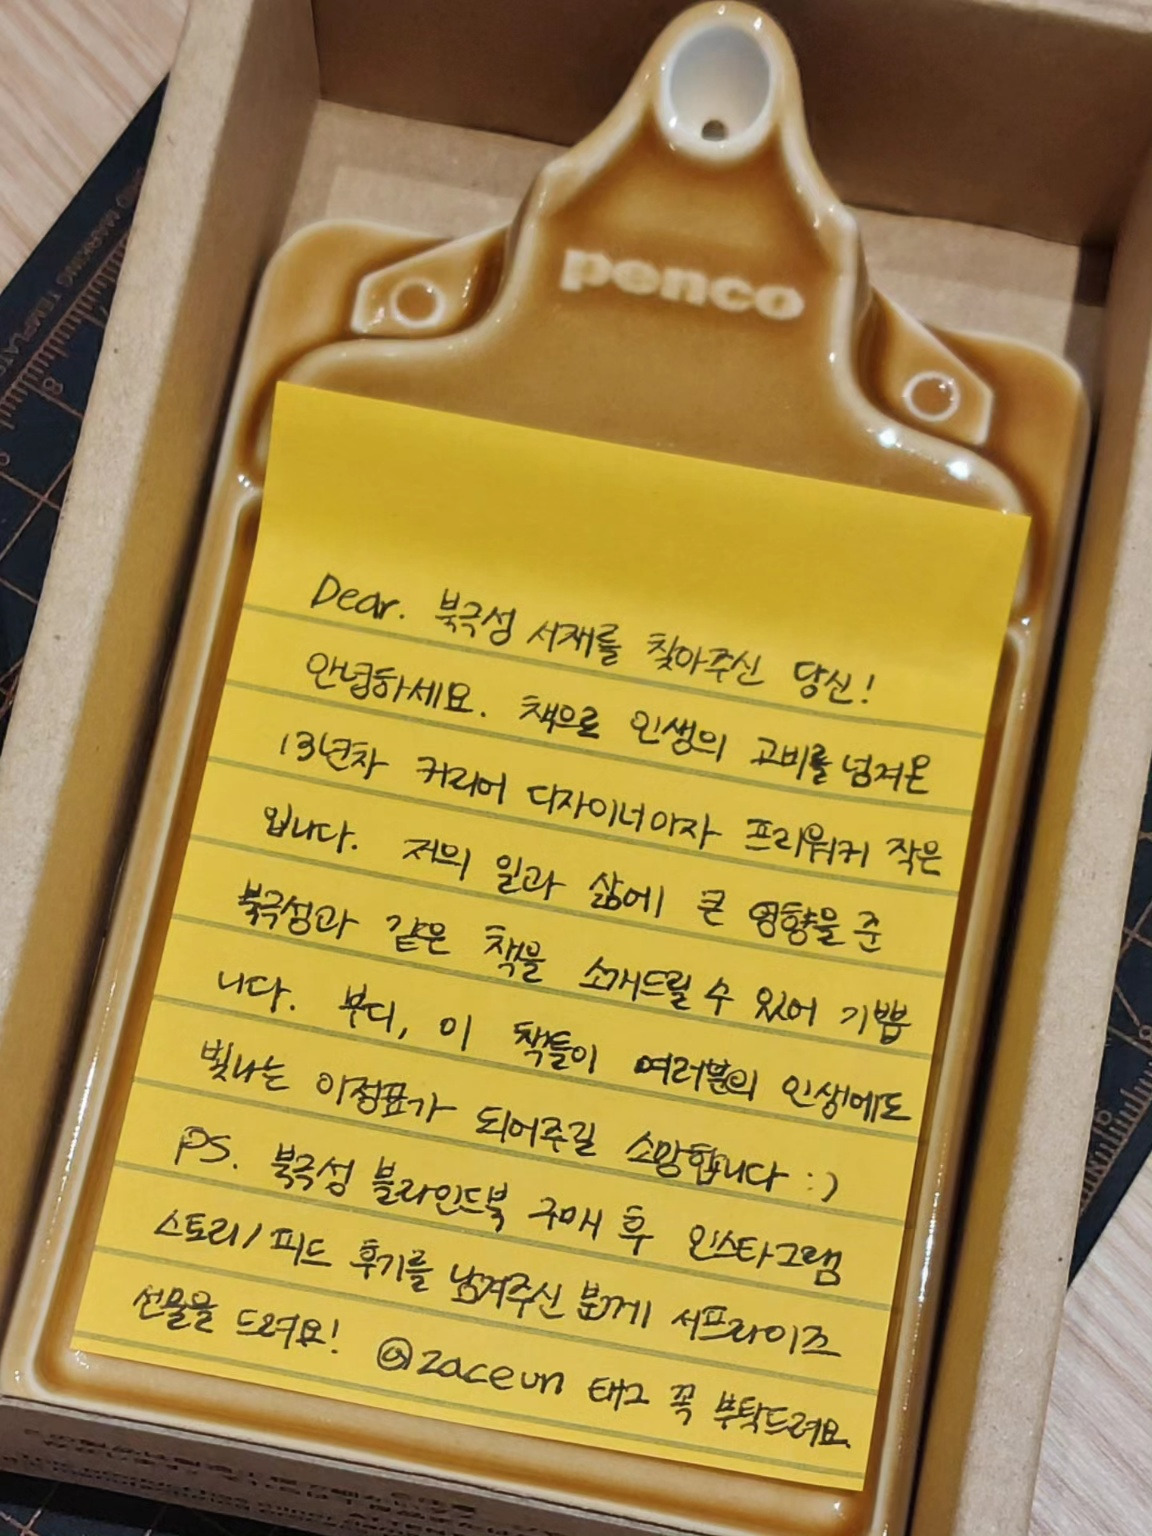 penco
Dear. 북극성 서재를 찾아주신 당신!
안녕하세요. 책으로 인생의 고비를 넘겨온
13년차 커리어 디자이너이자 프리워커 작은
입니다. 저의 일과 삶에 큰 영향을 준
북극성과 같은 책을 소개드릴 수 있어 기쁩
니다. 부디, 이 책들이 여러분의 인생에도
빛나는 이정표가 되어주길 소망합니다 :)
PS. 북극성 블라인드북 구매 후 인스타그램
스토리/피드 후기를 남겨주신 분께 서프라이즈
선물을 드려요! @zaceun 태그 꼭 부탁드려요.